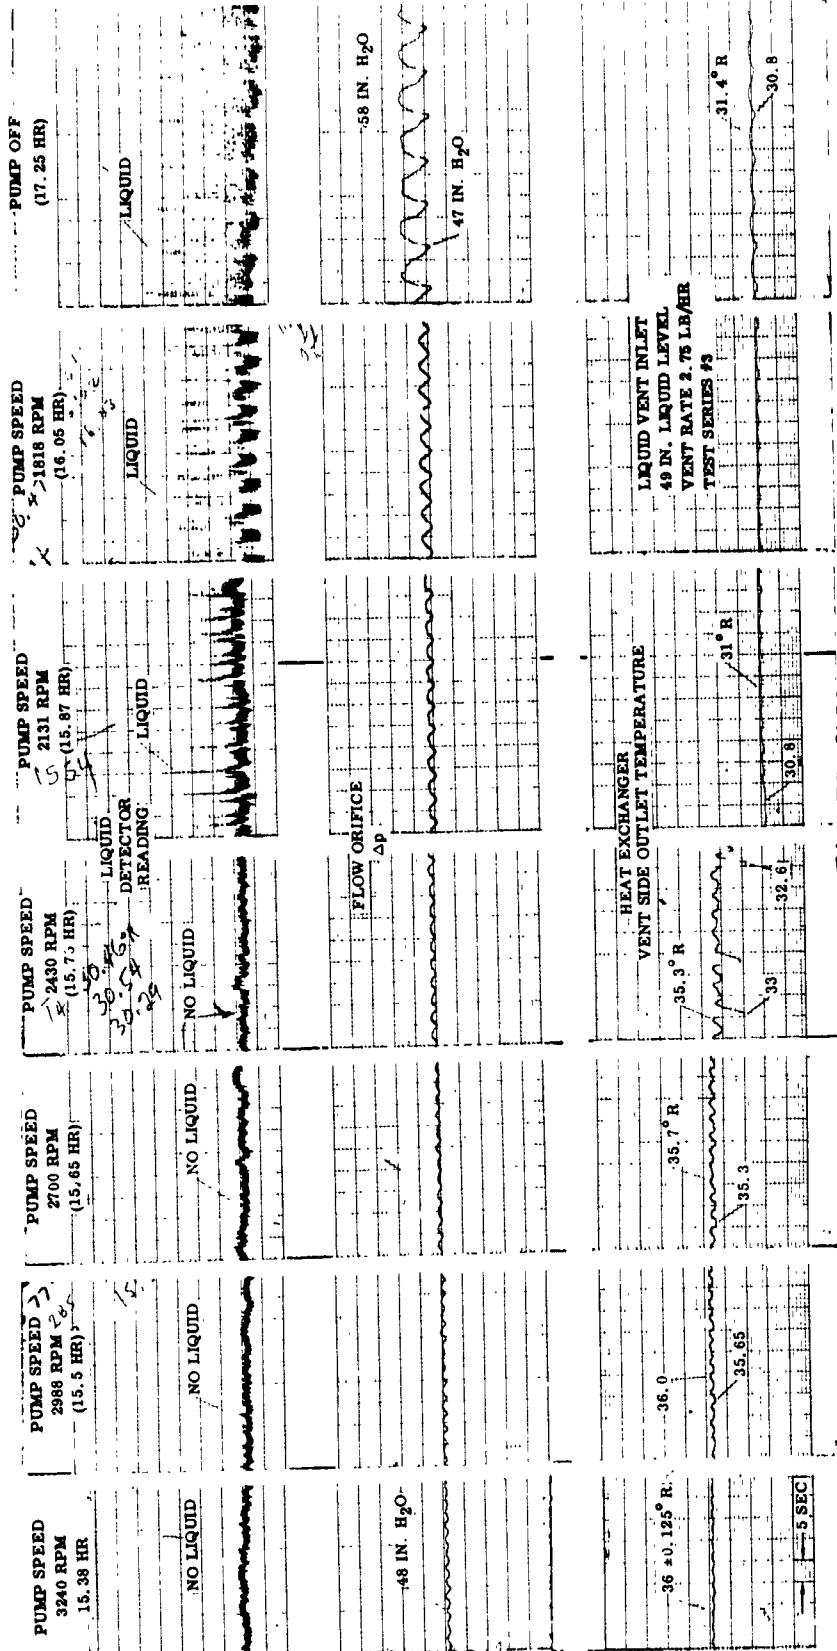 PUMP SPEED
3240 RPM
15.38 HR
NO LIQUID
48 IN. H₂O
36 ±0.125° R
5 SEC
PUMP SPEED
2988 RPM
(15.5 HR)
NO LIQUID
36.0
35.65
PUMP SPEED
2700 RPM
(15.65 HR)
NO LIQUID
35.7° R
35.3
PUMP SPEED
2430 RPM
30.54
30.29
NO LIQUID
LIQUID
DETECTOR
READING
FLOW ORIFICE
Δp
HEAT EXCHANGER
VENT SIDE OUTLET TEMPERATURE
35.3° R
33
32.6
PUMP SPEED
2131 RPM
(15.87 HR)
LIQUID
31° R
30.8
PUMP SPEED
1818 RPM
(16.05 HR)
LIQUID
LIQUID VENT INLET
49 IN. LIQUID LEVEL
VENT RATE 2.75 LB/HR
TEST SERIES #3
PUMP OFF
(17.25 HR)
LIQUID
58 IN. H₂O
47 IN. H₂O
31.4° R
30.8